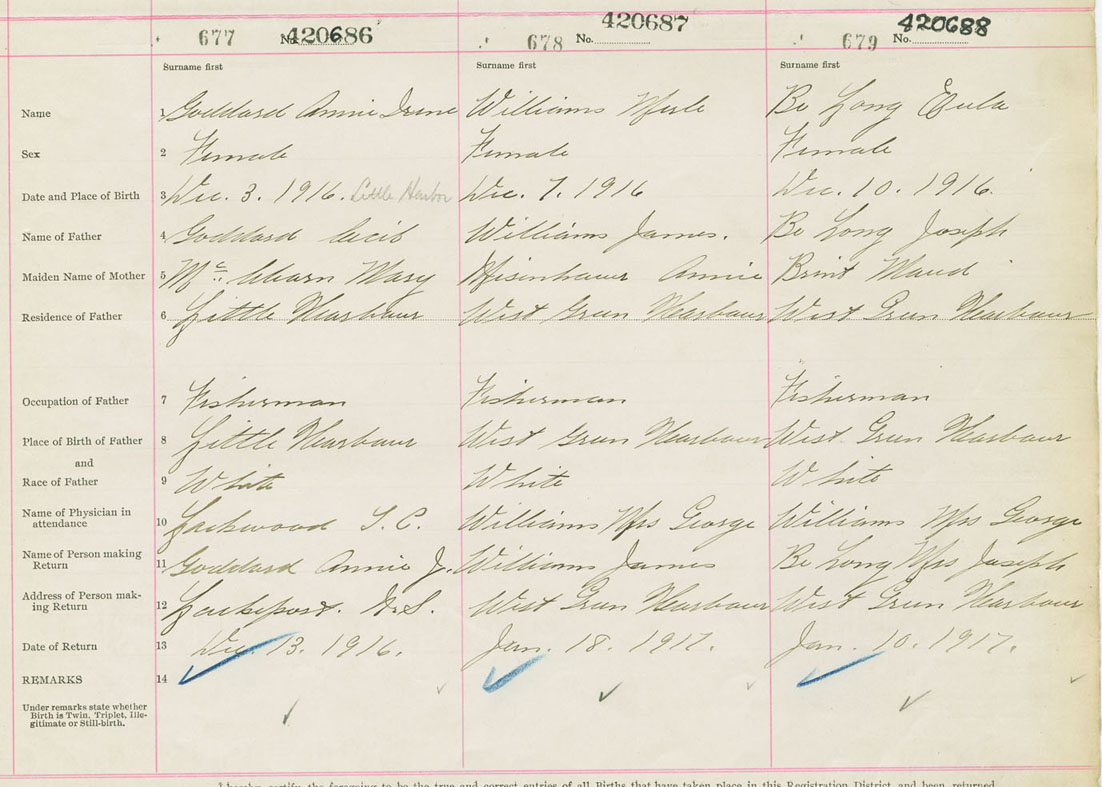 677 No. 420686 678 No. 420687 679 No. 420688
Surname first Surname first Surname first
Name 1 Goddard Annie Irene Williams Merle Be Long Eula
Sex 2 Female Female Female
Date and Place of Birth 3 Dec. 3. 1916. Little Harbor Dec. 7. 1916 Dec. 10. 1916.
Name of Father 4 Goddard Cecil Williams James. Be Long Joseph
Maiden Name of Mother 5 Mc Mary Annie Brint Maud
Residence of Father 6 Little Harbour West Green Harbour West Green Harbour
Occupation of Father 7 Fisherman Fisherman Fisherman
Place of Birth of Father 8 Little Harbour West Green Harbour West Green Harbour
and
Race of Father 9 White White White
Name of Physician in
attendance 10 Lockwood T. C. Williams Mrs George Williams Mrs George
Name of Person making
Return 11 Goddard Annie J. Williams James Be Long Mrs Joseph
Address of Person mak-
ing Return 12 Lockeport. N.S. West Green Harbour West Green Harbour
Date of Return 13 Dec. 13. 1916. Jan. 18. 1917. Jan. 10. 1917.
REMARKS 14
Under remarks state whether
Birth is Twin, Triplet, Ille-
gitimate or Still-birth.
I hereby certify the foregoing to be the true and correct entries of all Births that have taken place in this Registration District, and been returned